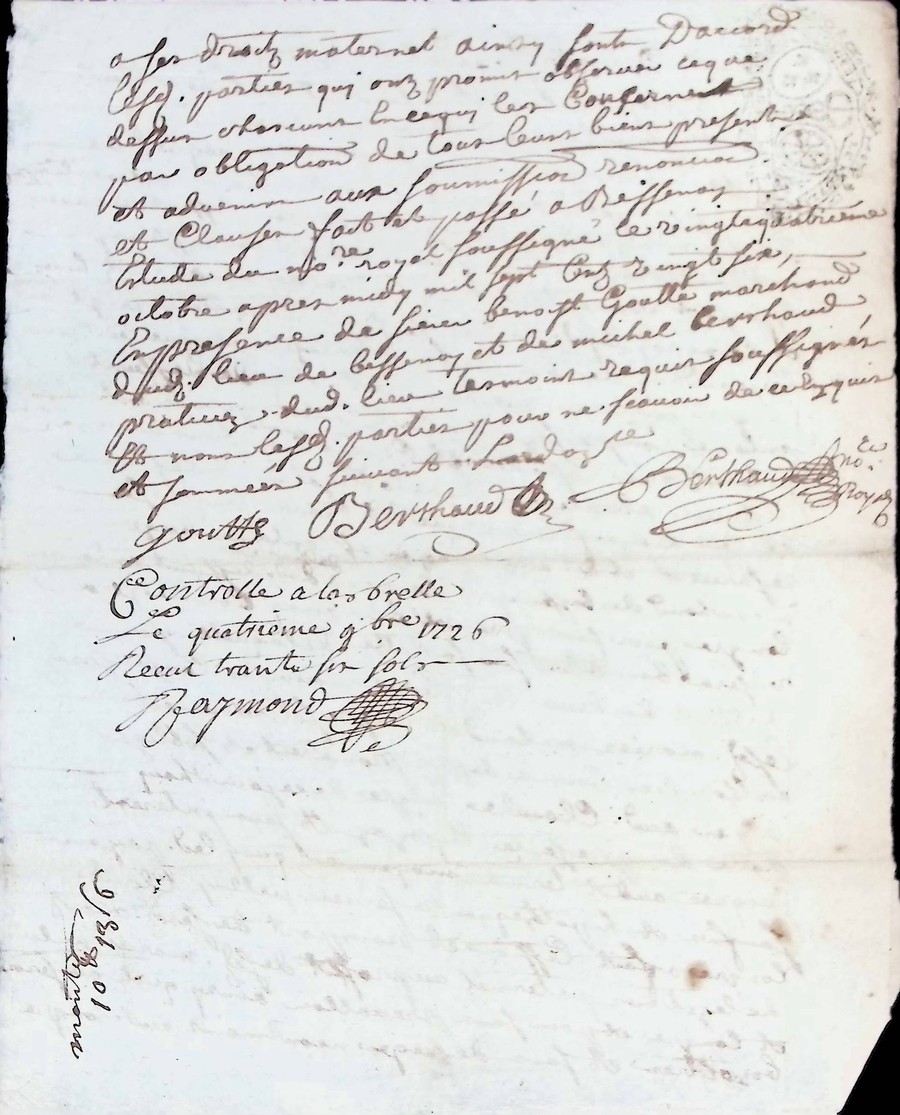 a ses droitz maternel ainsy sont Daccord
lesd. parties qui ont promis observer ceque
dessus chascune Encequi les Consernent
par obligation de tous leurs biens presents
et advenir aux soumission renonciaon
et Clauses fait et passé a Bessenay
Estude du no.re royal soussigné le vingtaquatrieme
octobre apres midy mil sept Cent vingt six,
En presence de sieur benoist Goutte marchand
dud. lieu de bessenay et de michel berthaud
praticien dud. lieu tesmoins requis soussignés
Et non lesd. parties pour ne scavoir de ce Enquis
et sommées suivant Lordo.ce
goutte Berthaud Berthaud no.re Royal
Controlle a la brelle
Le quatrieme 9bre 1726
Receu trante six sols
Raymond